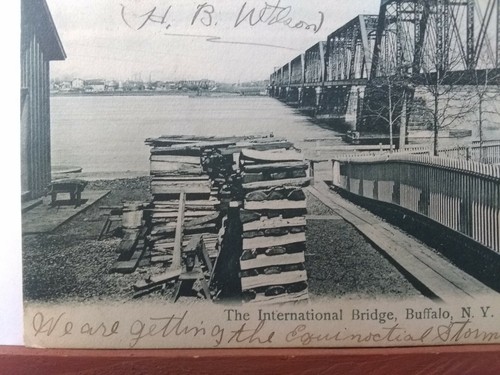 (H. B. Wilson)
The International Bridge, Buffalo, N. Y.
We are getting the Equinoctial Storm